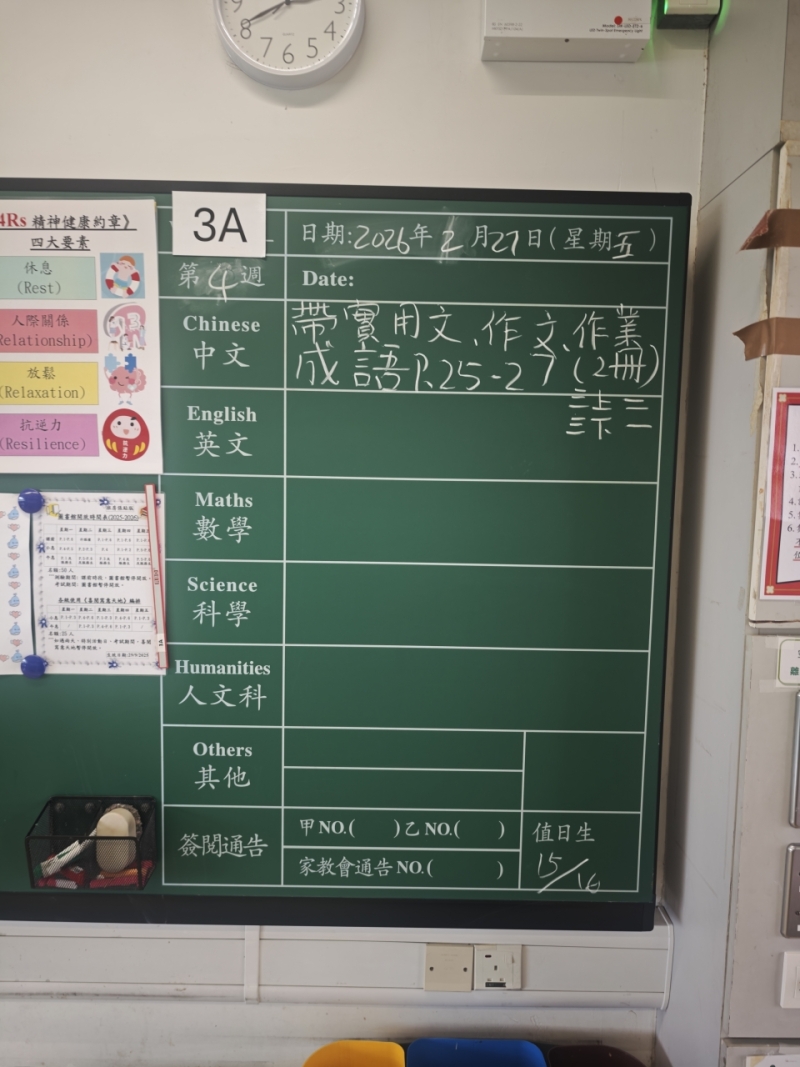 9
3
8
4
7
6
5
4Rs 精神健康約章》
四大要素
休息
(Rest)
人際關係
Relationship)
放鬆
(Relaxation)
抗逆力
(Resilience)
3A
日期:2026年2月27日(星期五)
第4週
Date:
Chinese
中文
帶實用文、作文、作業
成語P.25-27(2冊)
三上三
三下一
English
英文
Maths
數學
Science
科學
Humanities
人文科
Others
其他
簽閱通告
甲NO.( )乙NO.( )
家教會通告NO.( )
值日生
15/16
圖書館開放時間表(2025-2026)
1.
2.
3.
4.
5.
6.